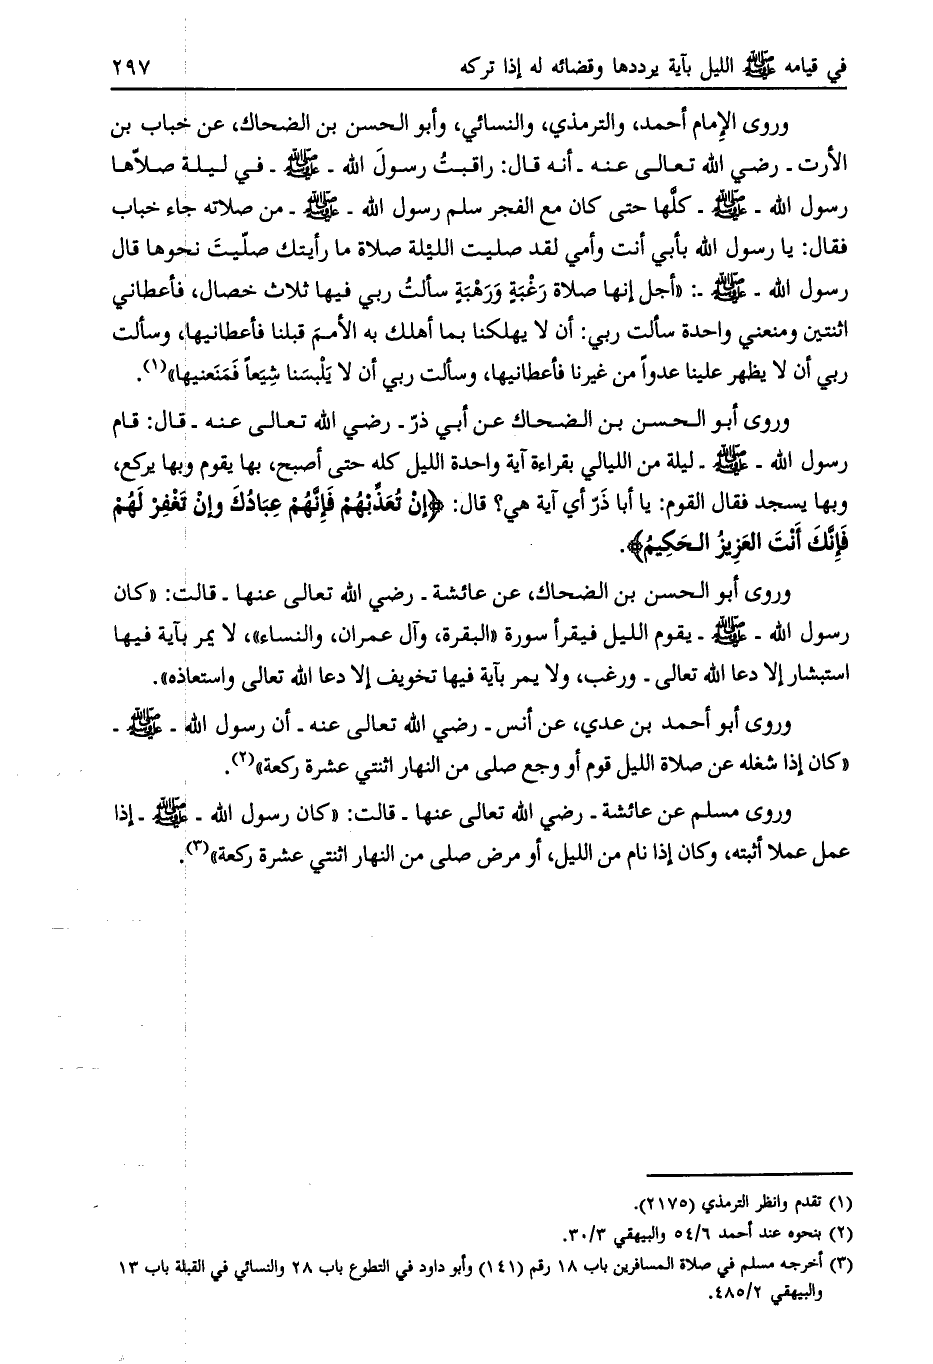 في قيامه ﷺ الليل بآية يرددها وقضائه له إذا تركه ٢٩٧
وروى الإمام أحمد، والترمذي، والنسائي، وأبو الحسن بن الضحاك، عن خباب بن
الأرت ـ رضي الله تعالى عنه ـ أنه قال: راقبتُ رسولَ الله ـ ﷺ ـ في ليلة صلاّها
رسول الله ـ ﷺ ـ كلَّها حتى كان مع الفجر سلم رسول الله ـ ﷺ ـ من صلاته جاء خباب
فقال: يا رسول الله بأبي أنت وأمي لقد صليت الليْلة صلاة ما رأيتك صلّيتَ نحوها قال
رسول الله ـ ﷺ ـ: «أجل إنها صلاة رَغْبَةٍ وَرَهْبَةٍ سألتُ ربي فيها ثلاث خصال، فأعطاني
اثنتين ومنعني واحدة سألت ربي: أن لا يهلكنا بما أهلك به الأممَ قبلنا فأعطانيها، وسألت
ربي أن لا يظهر علينا عدواً من غيرنا فأعطانيها، وسألت ربي أن لا يَلْبسَنا شِيَعاً فَمَنَعنيها»(١).
وروى أبو الحسن بن الضحاك عن أبي ذرّ ـ رضي الله تعالى عنه ـ قال: قام
رسول الله ـ ﷺ ـ ليلة من الليالي بقراءة آية واحدة الليل كله حتى أصبح، بها يقوم وبها يركع،
وبها يسجد فقال القوم: يا أبا ذَرّ أي آية هي؟ قال: ﴿إنْ تُعَذِّبْهُمْ فَإِنَّهُمْ عِبَادُكَ وإنْ تَغْفِرْ لَهُمْ
فَإِنَّكَ أَنْتَ العَزِيزُ الحَكِيمُ﴾.
وروى أبو الحسن بن الضحاك، عن عائشة ـ رضي الله تعالى عنها ـ قالت: «كان
رسول الله ـ ﷺ ـ يقوم الليل فيقرأ سورة «البقرة، وآل عمران، والنساء»، لا يمر بآية فيها
استبشار إلا دعا الله تعالى ـ ورغب، ولا يمر بآية فيها تخويف إلا دعا الله تعالى واستعاذه».
وروى أبو أحمد بن عدي، عن أنس ـ رضي الله تعالى عنه ـ أن رسول الله ـ ﷺ ـ
«كان إذا شغله عن صلاة الليل قوم أو وجع صلى من النهار اثنتي عشرة ركعة»(٢).
وروى مسلم عن عائشة ـ رضي الله تعالى عنها ـ قالت: «كان رسول الله ـ ﷺ ـ إذا
عمل عملا أثبته، وكان إذا نام من الليل، أو مرض صلى من النهار اثنتي عشرة ركعة»(٣).
(١) تقدم وانظر الترمذي (٢١٧٥).
(٢) بنحوه عند أحمد ٥٤/٦ والبيهقي ٣٠/٣.
(٣) أخرجه مسلم في صلاة المسافرين باب ١٨ رقم (١٤١) وأبو داود في التطوع باب ٢٨ والنسائي في القبلة باب ١٣
والبيهقي ٤٨٥/٢.